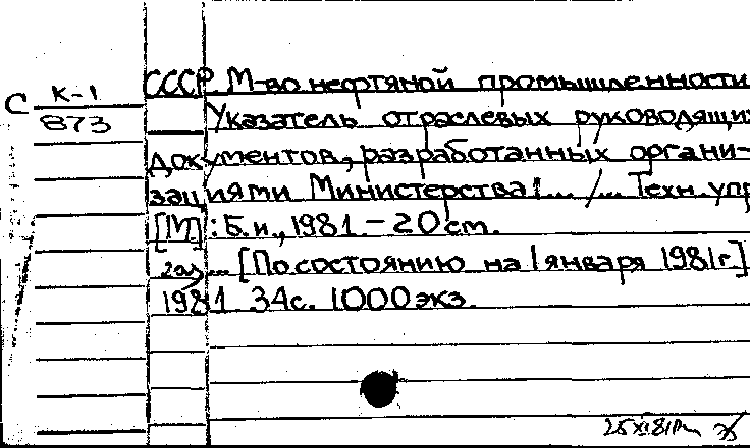 СССР. М-во нефтяной промышленности
С К-1
873
Указатель отраслевых руководящи
документов, разработанных органи-
зациями Министерства! ... /... Техн. упр
[М]: Б.и., 1981 - 20 см.
... [По состоянию на 1 января 1981г.]
1981 34с. 1000 экз.